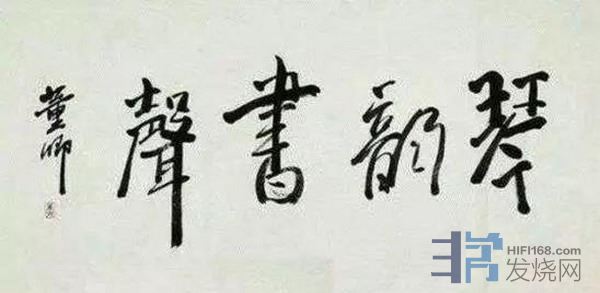 琴韵書聲
董卿
HIFI168.com
发烧网